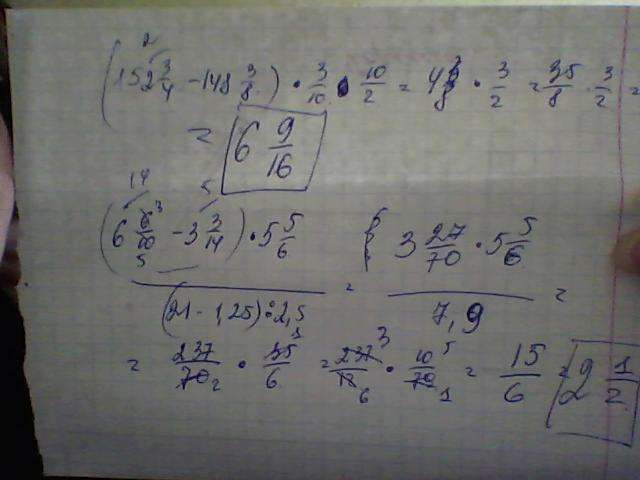 (152 3/4 - 148 3/8) · 3/10 · 10/2 = 4 3/8 · 3/2 = 35/8 · 3/2 =
= 6 9/16
(6 6/10 - 3 3/14) · 5 5/6 / (21 - 1,25) : 2,5 = 3 27/70 · 5 5/6 / 7,9 =
= 237/70 · 35/6 = 237/12 · 10/79 = 15/6 = 2 1/2